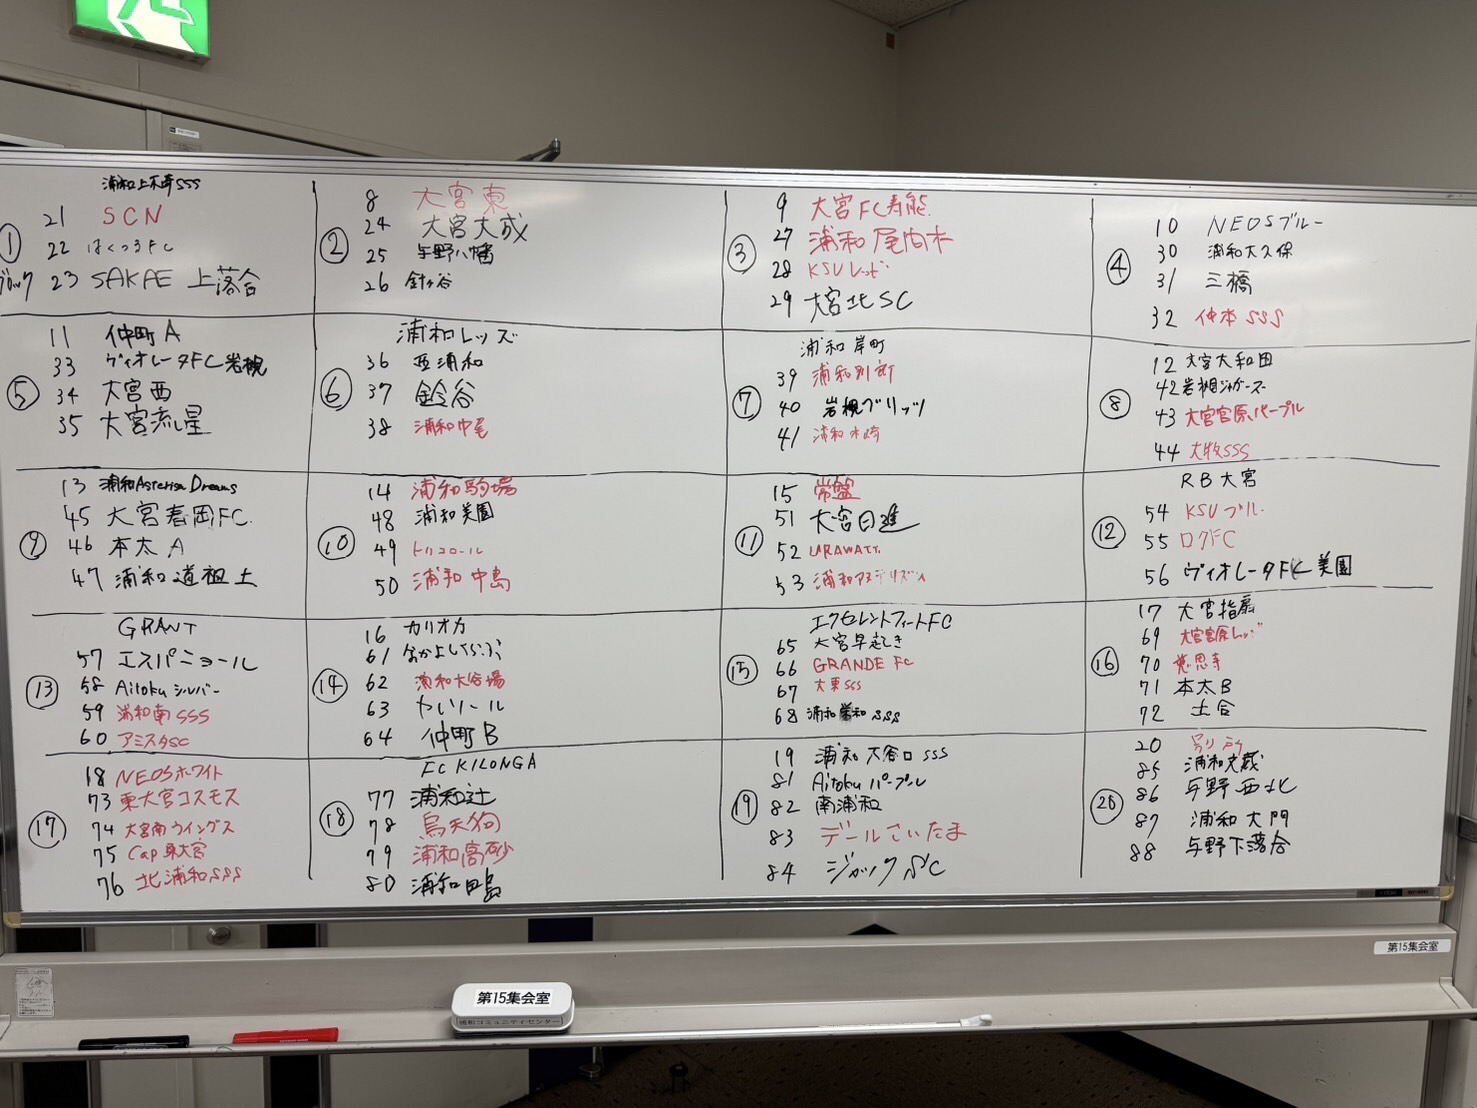 浦和上木崎SSS
① 21 SCN
22 はくつるFC
ブロック 23 SAKAE 上落合
② 8 大宮東
24 大宮大成
25 与野八幡
26 針ヶ谷
③ 9 大宮FC寿能
27 浦和尾間木
28 KSUレッド
29 大宮北SC
④ 10 NEOSブルー
30 浦和大久保
31 三橋
32 仲本SSS
⑤ 11 仲町A
33 ヴィオレータFC岩槻
34 大宮西
35 大宮流星
⑥ 浦和レッズ
36 西浦和
37 鈴谷
38 浦和中尾
⑦ 浦和岸町
39 浦和別所
40 岩槻ブリッツ
41 浦和木崎
⑧ 12 大宮大和田
42 岩槻ジャガーズ
43 大宮宮原パープル
44 大牧SSS
⑨ 13 浦和Asterisa Dreams
45 大宮春岡FC
46 本太A
47 浦和道祖土
⑩ 14 浦和駒場
48 浦和美園
49 トリコロール
50 浦和中島
⑪ 15 常盤
51 大宮日進
52 URAWATT.
53
⑫ RB大宮
54 KSUブル-
55 ロクFC
56 ヴィオレータFC美園
⑬ GRANT
57 エスパニョール
58 Aitokuシルバー
59 浦和南SSS
60 アミスタSC
⑭ 16 カリオカ
61
62 浦和大谷場
63
64 仲町B
⑮ エクセレントフィートFC
65 大宮早起き
66 GRANDE FC
67 大東SSS
68 浦和常和SSS
⑯ 17 大宮指扇
69 大宮宮原レッド
70 慈恩寺
71 本太B
72 土合
⑰ 18 NEOSホワイト
73 東大宮コスモス
74 大宮南ウイングス
75 Cap東大宮
76 北浦和SSS
⑱ FC KILONGA
77 浦和辻
78 烏天狗
79 浦和高砂
80 浦和田島
⑲ 19 浦和大谷口SSS
81 Aitokuパープル
82 南浦和
83 デールさいたま
84 ジャックSC
⑳ 20 別所
85 浦和文蔵
86 与野西北
87 浦和大門
88 与野下落合
第15集会室
第15集会室
浦和コミュニティセンター